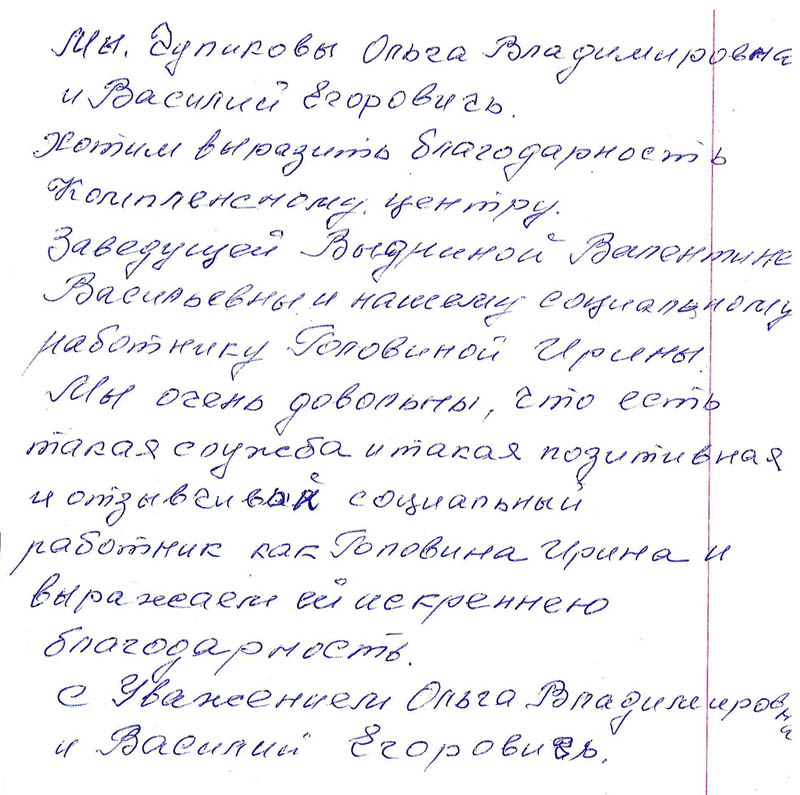 Мы. Чупиковы Ольга Владимировна
и Василий Егоровичь.
Хотим выразить благодарность
Комплексному. центру.
Заведущей Выдриной Валентине
Васильевны и нашему социальному
работнику Головиной Ирины.
Мы очень довольны, что есть
такая служба и такая позитивная
и отзывчивый социальный
работник как Головина Ирина и
выражаем ей искреннею
благодарность.
С Уважением Ольга Владимировна
и Василий Егоровичь.